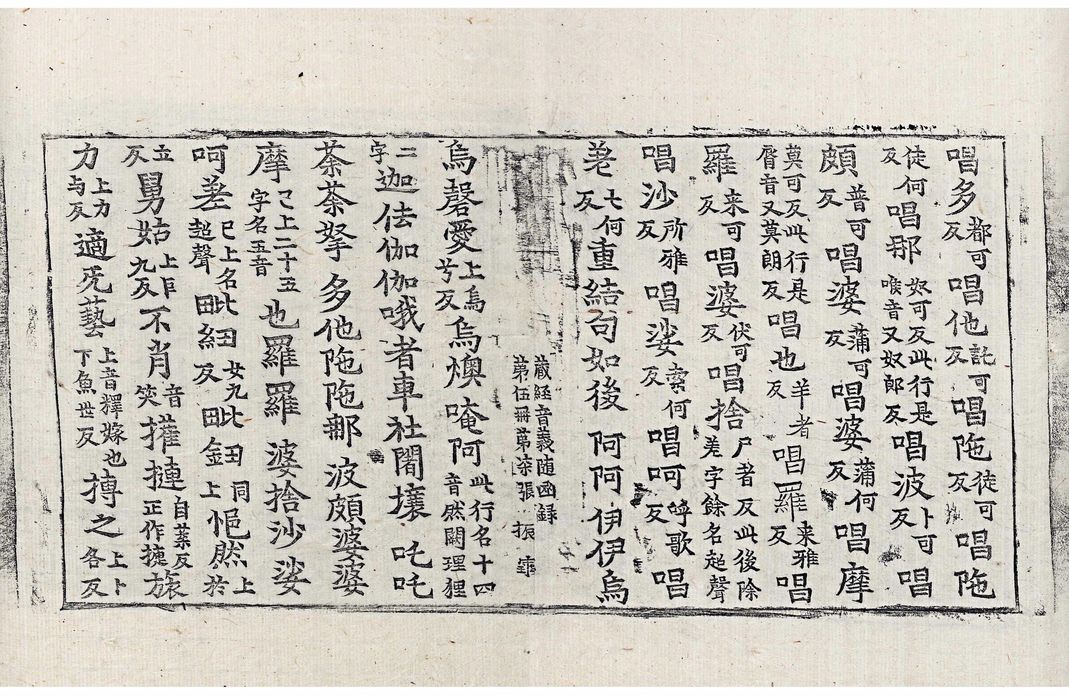 唱多都可反唱他託可反唱陁徒可反唱陁
徒何反唱那奴可反此行是喉音又奴郎反唱波卜可反唱
頗普可反唱婆蒲可反唱婆蒲何反唱摩
莫可反此行是脣音又莫朗反唱也羊者反唱羅来雅反唱
羅来可反唱婆伏可反唱捨尸者反此後除差字餘名超聲
唱沙所雅反唱娑索何反唱呵呼歌反唱
差七何反重結句如後阿阿伊伊烏
藏経音義随函録
第伍冊第柒張 振
烏磬愛上烏兮反烏燠唵阿此行名十四音然闕理狸
二字迦佉伽伽哦者車社闍壤吒吒
茶茶拏多他陁陁那波頗婆婆
摩已上二十五字名五音也羅羅婆捨沙娑
呵差已上名超聲毗紐女九反毗𨥧同上悒然上於
立反舅姑上巨九反不肖音笑㩲揵自葉反正作揵旅
力上力与反適兂藝上音釋嫁也下魚世反摶之上卜各反